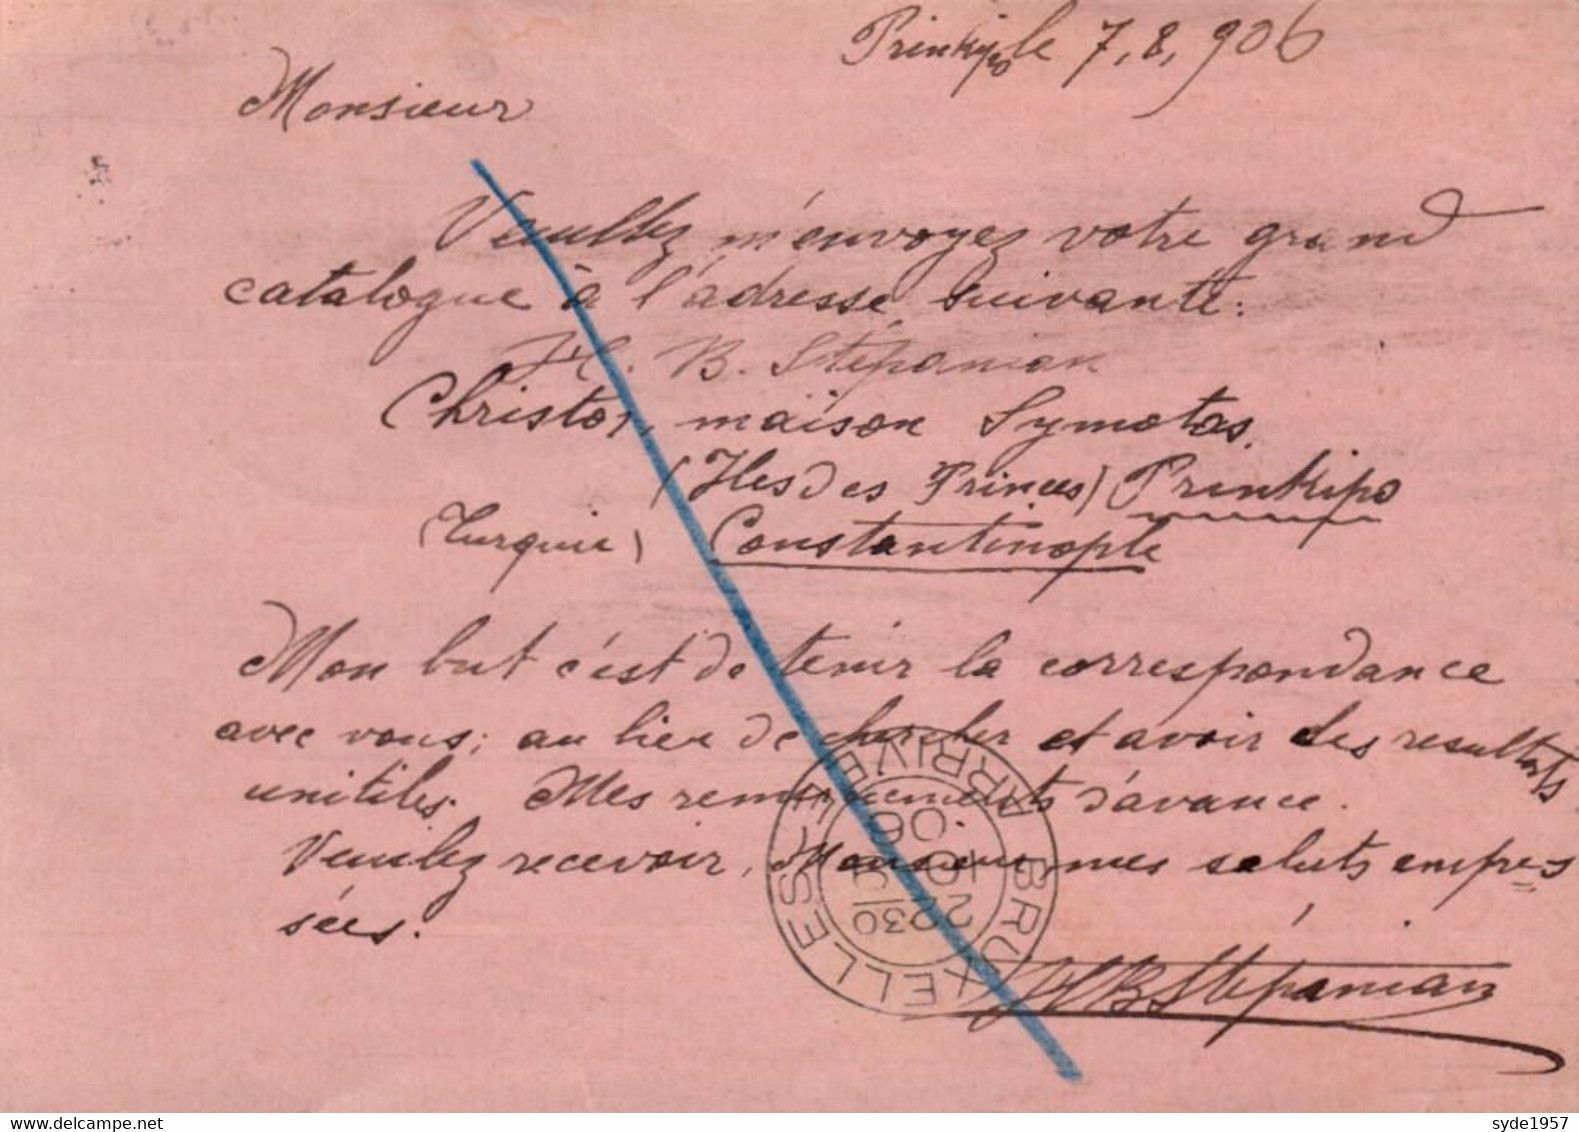 Prinkipo le 7, 8, 906
Monsieur
Veuillez m'envoyez votre grand
catalogue à l'adresse suivante:
H. B. Stépanian
Christos, maison Symotas.
(Iles des Princes) Prinkipo
(Turquie) Constantinople
Mon but c'est de tenir la correspondance
avec vous; au lieu de chercher et avoir des resultats
unitiles. Mes remerciements d'avance.
Veuilez recevoir, Monsieur, mes saluts empres-
sées.
HB Stépanian
BRUXELLES ARRIVEE
2230
10
06
syde1957